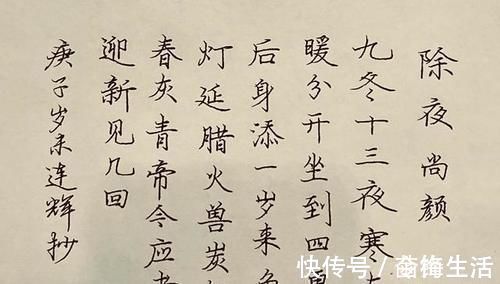 除夜尚颜
九冬十三夜寒
暖分开坐到四
后身添一岁来
灯延腊火兽炭
春灰青帝今应
迎新见几回
庚子岁末连辉抄
快传号 / 生活